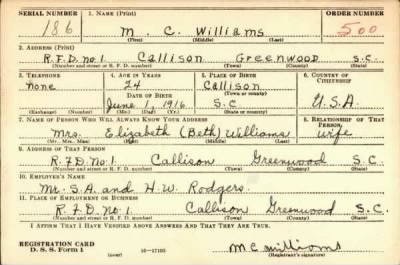 SERIAL NUMBER 1. NAME (Print) ORDER NUMBER
186 M. C. Williams 500
(First) (Middle) (Last)
2. ADDRESS (Print)
R.F.D. no. 1 Callison Greenwood S.C.
(Number and street or R. F. D. number) (Town) (County) (State)
3. TELEPHONE 4. AGE IN YEARS 5. PLACE OF BIRTH 6. COUNTRY OF CITIZENSHIP
none 24 Callison
DATE OF BIRTH (Town or county)
June 1, 1916 S.C U.S.A
(Exchange) (Number) (Mo.) (Day) (Yr.) (State or country)
7. NAME OF PERSON WHO WILL ALWAYS KNOW YOUR ADDRESS 8. RELATIONSHIP OF THAT PERSON
Mrs. Elizabeth (Beth) Williams wife
(Mr., Mrs., Miss) (First) (Middle) (Last)
9. ADDRESS OF THAT PERSON
R.F.D. no. 1. Callison Greenwood S.C.
(Number and street or R. F. D. number) (Town) (County) (State)
10. EMPLOYER'S NAME
Mr. S.A. and H.W. Rodgers.
11. PLACE OF EMPLOYMENT OR BUSINESS
R.F.D. no. 1. Callison Greenwood S.C.
(Number and street or R. F. D. number) (Town) (County) (State)
I AFFIRM THAT I HAVE VERIFIED ABOVE ANSWERS AND THAT THEY ARE TRUE.
REGISTRATION CARD
D. S. S. Form 1 (over) 16—17105 M C Williams
(Registrant's signature)